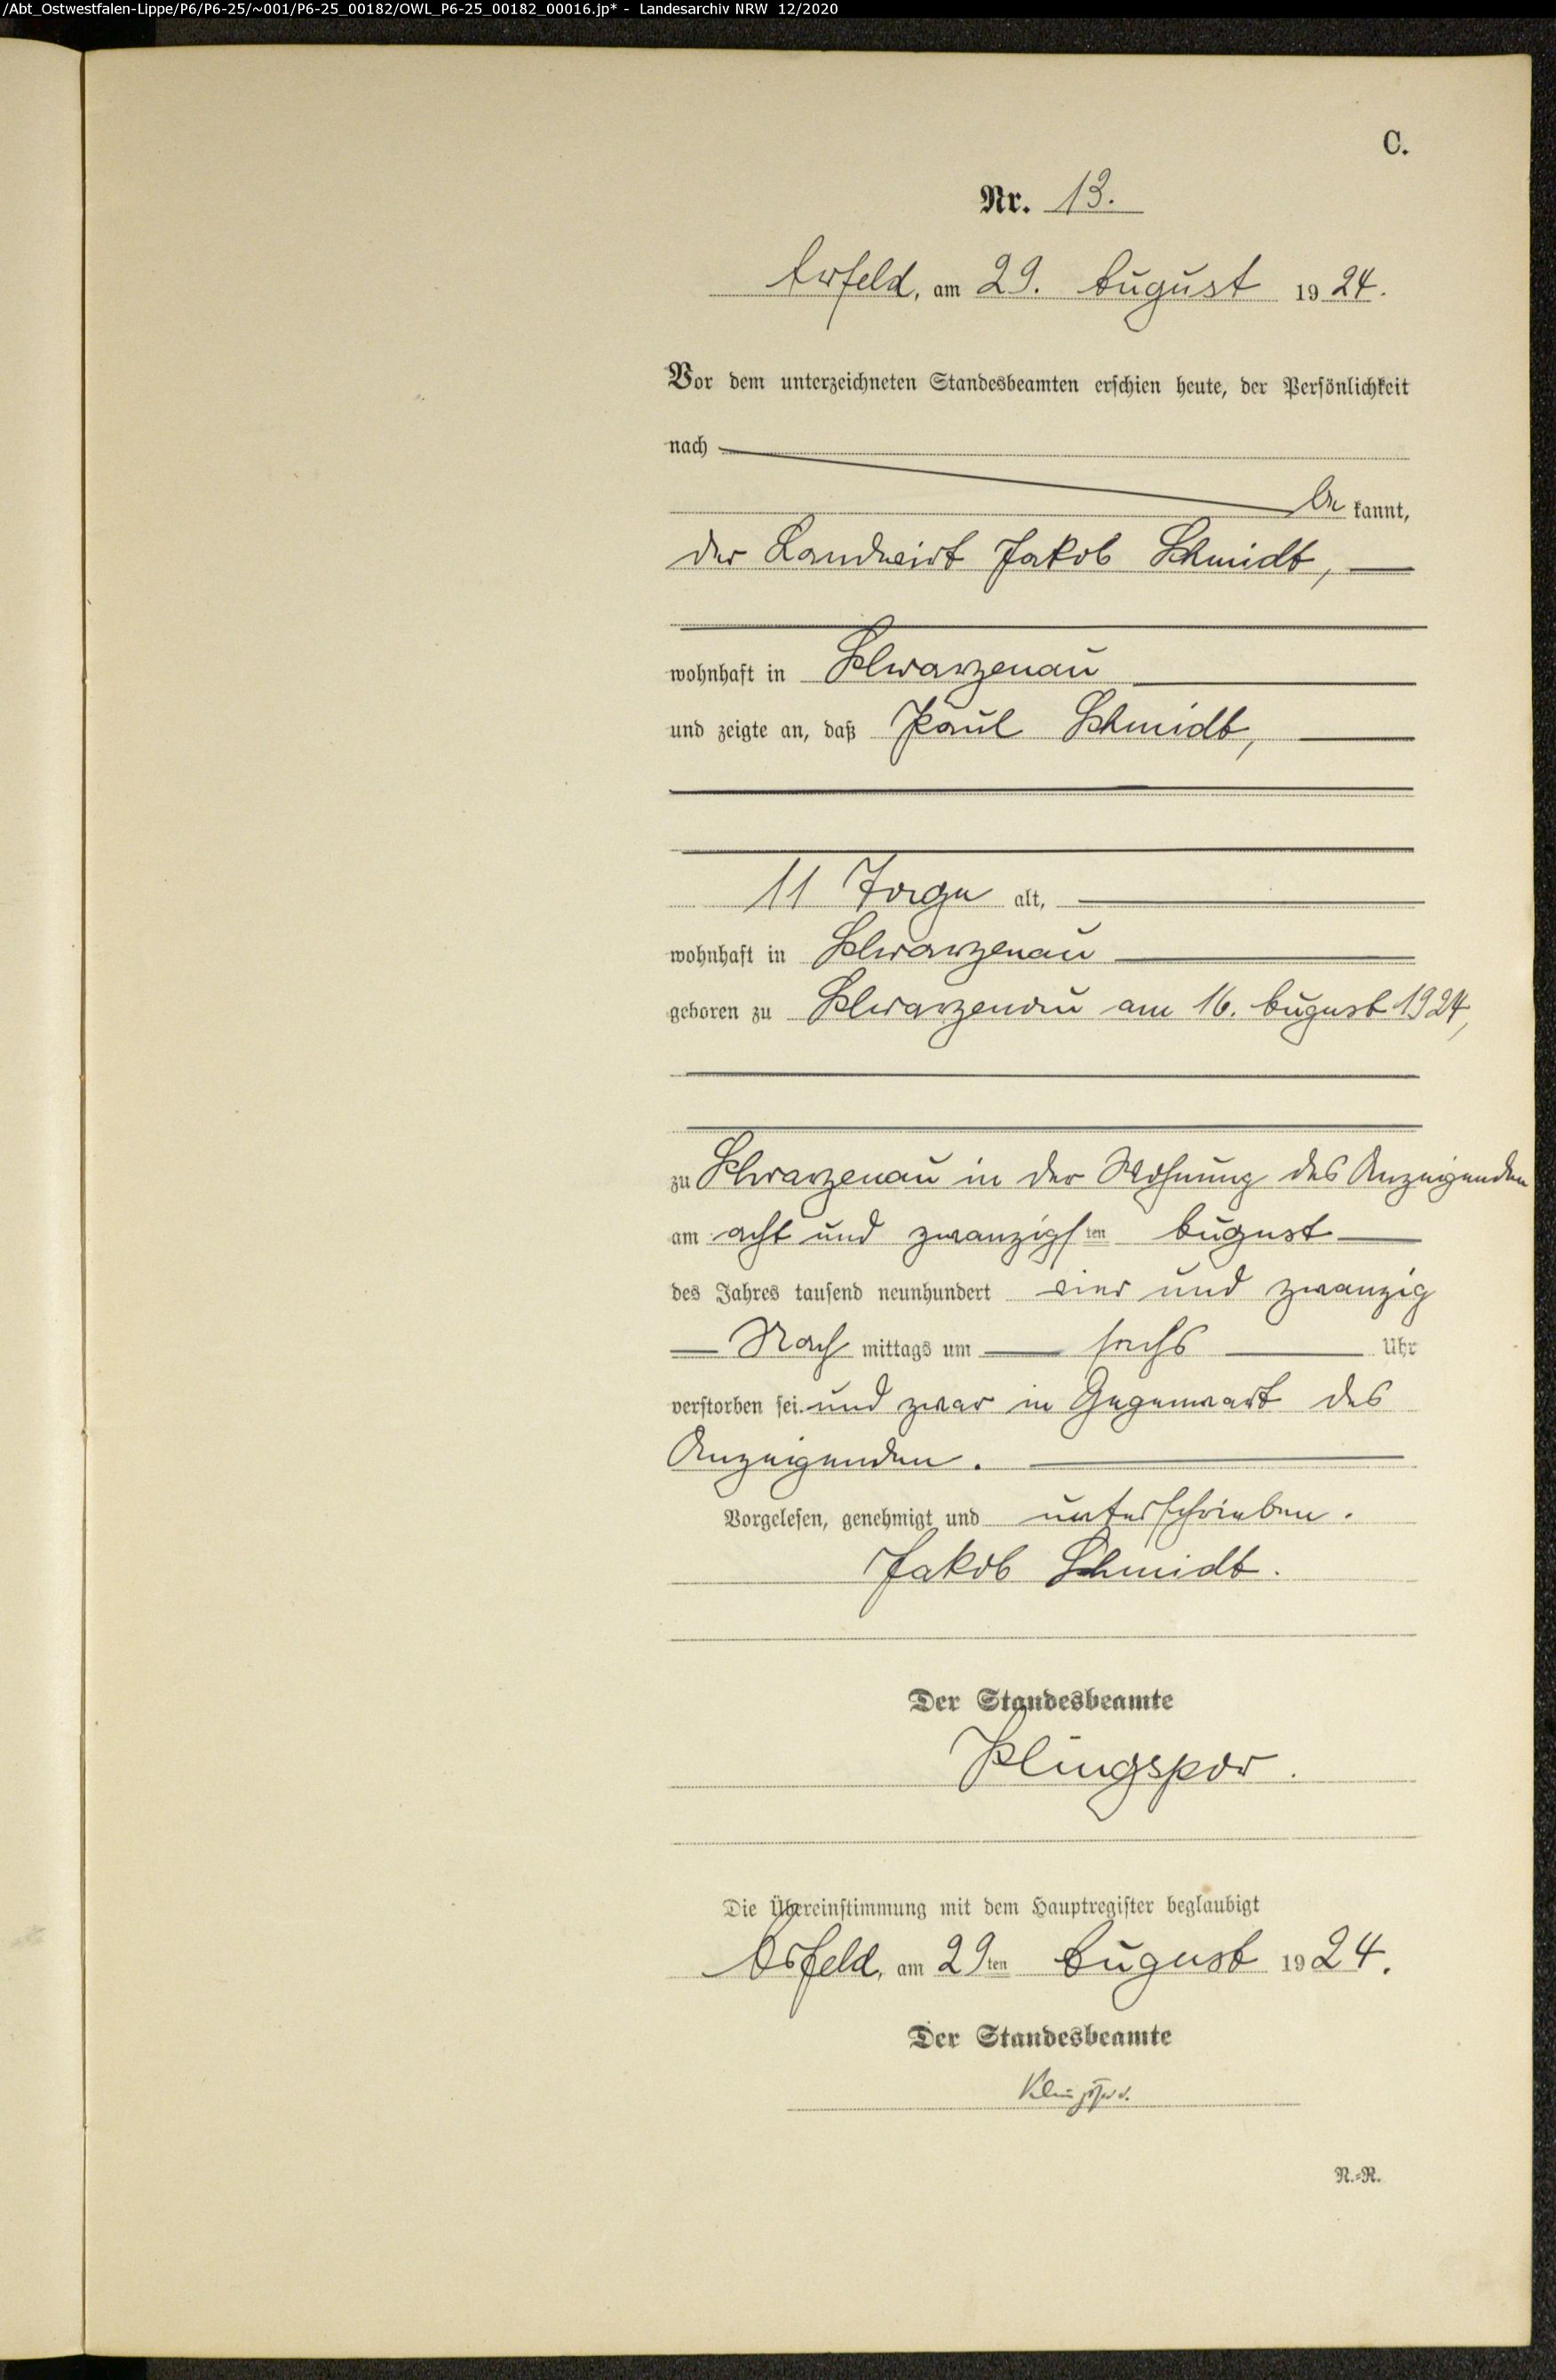 /Abt_Ostwestfalen-Lippe/P6/P6-25/~001/P6-25_00182/OWL_P6-25_00182_00016.jp* - Landesarchiv NRW 12/2020
C.
Nr. 13.
Arfeld, am 29. August 1924.
Vor dem unterzeichneten Standesbeamten erschien heute, der Persönlichkeit
nach
be kannt,
der Landwirt Jakob Schmidt,
wohnhaft in Schwarzenau
und zeigte an, daß Paul Schmidt,
11 Tage alt,
wohnhaft in Schwarzenau
geboren zu Schwarzenau am 16. August 1924,
zu Schwarzenau in der Wohnung des Anzeigenden
am acht und zwanzigsten August
des Jahres tausend neunhundert vier und zwanzig
Nach mittags um sechs Uhr
verstorben sei. und zwar in Gegenwart des
Anzeigenden.
Vorgelesen, genehmigt und unterschrieben.
Jakob Schmidt.
Der Standesbeamte
Klingspor.
Die Übereinstimmung mit dem Hauptregister beglaubigt
Arfeld, am 29ten August 1924.
Der Standesbeamte
Klingspor.
N.=R.